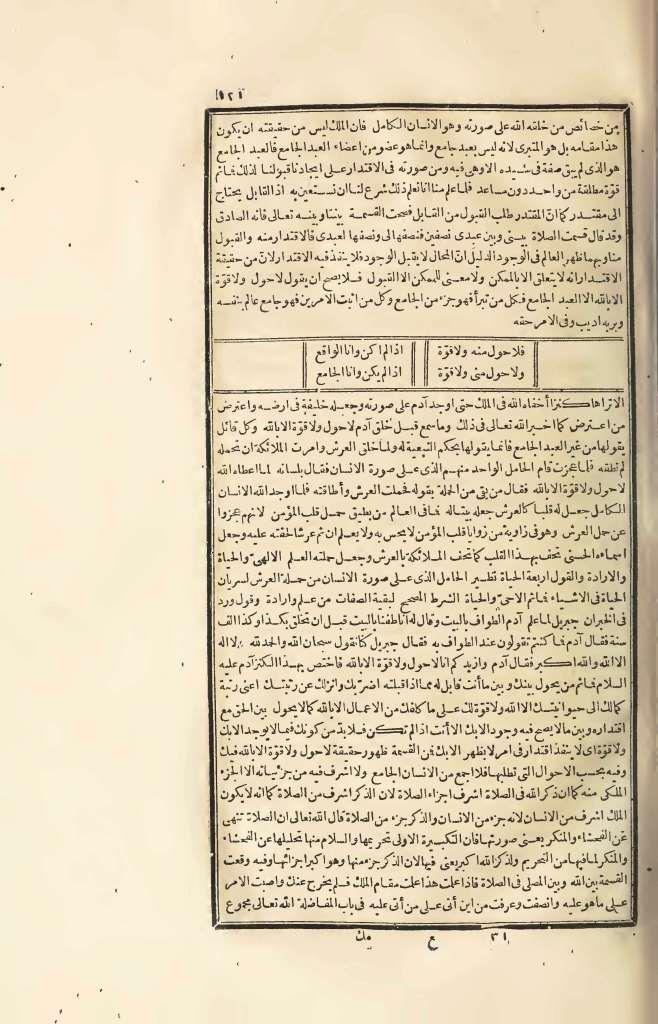 ١٢١
من خصائص من خلقه الله على صورته وهو الانسان الكامل فان الملك ليس من حقيقته ان يكون
هذا مقامه بل هو المتبرى لانه ليس بعبد جامع وانما هو عضو من اعضاء العبد الجامع فالعبد الجامع
هو الذى لم يبق صفة فى سيده الا وهى فيه ومن صورته فى الاقتدار على ايجادنا قبولنا لذلك فما تم
قوة مطلقة من واحد دون مساعد فلما علم منا انا نعلم ذلك شرع لنا ان نستعين به اذ القابل يحتاج
الى مقتدر كما ان المقتدر طلب القبول من القابل فصحت القسمة بيننا وبينه تعالى فانه الصادق
وقد قال قسمت الصلاة بينى وبين عبدى نصفين فنصفها لى ونصفها لعبدى فالاقتدار منه والقبول
منا وبهما ظهر العالم فى الوجود الدليل انّ المحال لا يقبل الوجود فلا ينفذ فيه الاقتدار لانّ من حقيقة
الاقتدار انه لا يتعلق الا بالممكن ولا معنى للممكن الا القبول فلا يصح ان يقول لا حول ولا قوّة
الا بالله الا العبد الجامع فكل من تبرأ فهو جزء من الجامع وكل من اثبت الامرين فهو جامع عالم بنفسه
وبربه اديب وفى الامر حقه
فلا حول منه ولا قوّة اذا لم اكن وانا الواقع
ولا حول منى ولا قوّة اذا لم يكن وانا الجامع
الا تراها كنزا أخفاه الله فى الملك حتى اوجد آدم على صورته وجعله خليفة فى ارضه واعترض
من اعترض كما اخبر الله تعالى فى ذلك وما سمع قبل خلق آدم لا حول ولا قوّة الا بالله وكل قائل
يقولها من غير العبد الجامع فانما يقولها بحكم التبعية له ولما خلق العرش وامرت الملائكة ان تحمله
لم تطقه فلما عجزت قام الحامل الواحد منهم الذى على صورة الانسان فقال بلسانه لما اعطاه الله
لا حول ولا قوّة الا بالله فقال من بقى من الحملة بقوله فحملت العرش وأطاقته فلما اوجد الله الانسان
الكامل جعل له قلبا كالعرش جعله بيتا له فما فى العالم من يطيق حمل قلب المؤمن لانهم عجزوا
عن حمل العرش وهو فى زاوية من زوايا قلب المؤمن لا يحس به ولا يعلم ان ثم عرشا لخفته عليه وجعل
اسماءه الحسنى تحف بهذا القلب كما تحف الملائكة بالعرش وجعل حملته العلم الالهىّ والحياة
والارادة والقول اربعة الحياة نظير الحامل الذى على صورة الانسان من حملة العرش لسريان
الحياة فى الاشياء فما ثم الا حىّ والحياة الشرط المصحح لبقية الصفات من علم وارادة وقول ورد
فى الخبر ان جبريل لما علم آدم الطواف بالبيت وقال له انا طفنا بالبيت قبل ان تخلق بكذا وكذا الف
سنة فقال آدم فما كنتم تقولون عند الطواف به فقال جبريل كنا نقول سبحان الله والحمد لله ولا اله
الا الله والله اكبر فقال آدم وازيدكم انا لا حول ولا قوّة الا بالله فاختص بهذا الكنز آدم عليه
السلام فما تم من يحول بينك وبين ما أنت قابل له مما اذا قبلته اضرّ بك وانزلك عن رتبتك اعنى رتبة
كمالك الى حيوانيتك الا الله ولا قوّة لك على ما كلفك من الاعمال الا بالله كما لا يحول بين الحق مع
اقتداره وبين ما لا يصح فيه وجود الا بك الا أنت اذا لم تكن فلا بدّ من كونك فيما لا يوجد الا بك
ولا قوّة اى لا ينفذ اقتدار فى امر لا يظهر الا بك فمن القسمة ظهور حقيقة لا حول ولا قوّة الا بالله فيك
وفيه بحسب الاحوال التى تطلبها فلا اجمع من الانسان الجامع ولا اشرف فيه من جزئياته الا الجزء
الملكى منه كما ان ذكر الله فى الصلاة اشرف اجزاء الصلاة لان الذكر اشرف من الصلاة كما انه لا يكون
الملك اشرف من الانسان لانه جزء من الانسان والذكر جزء من الصلاة قال الله تعالى ان الصلاة تنهى
عن الفحشاء والمنكر يعنى صورتها فان التكبيرة الاولى تحريمها والسلام منها تحليلها عن الفحشاء
والمنكر لما فيها من التحريم ولذكر الله اكبر يعنى فيها لان الذكر جزء منها وهو اكبر اجزائها وفيه وقعت
القسمة بين الله وبين المصلى فى الصلاة فاذا علمت هذا علمت مقام الملك فلم يخرج عنك واصبت الامر
على ما هو عليه وانصفت وعرفت من اين أتى على من أتى عليه فى باب المفاضلة الله تعالى بمجموع
٣١ ع مك